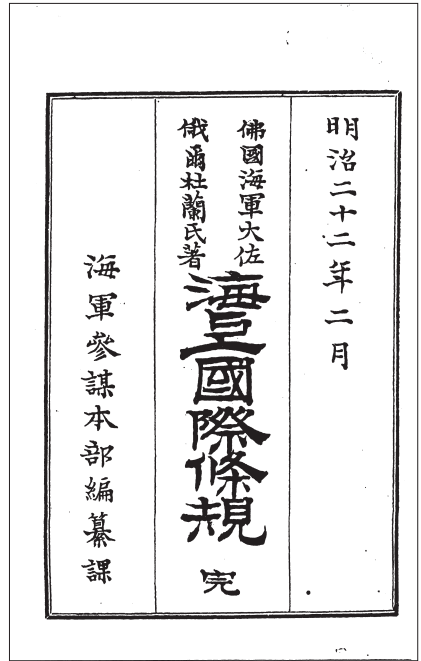 明治二十二年二月
佛國海軍大佐
俄爾杜蘭氏著
海上國際條規 完
海軍參謀本部編纂課